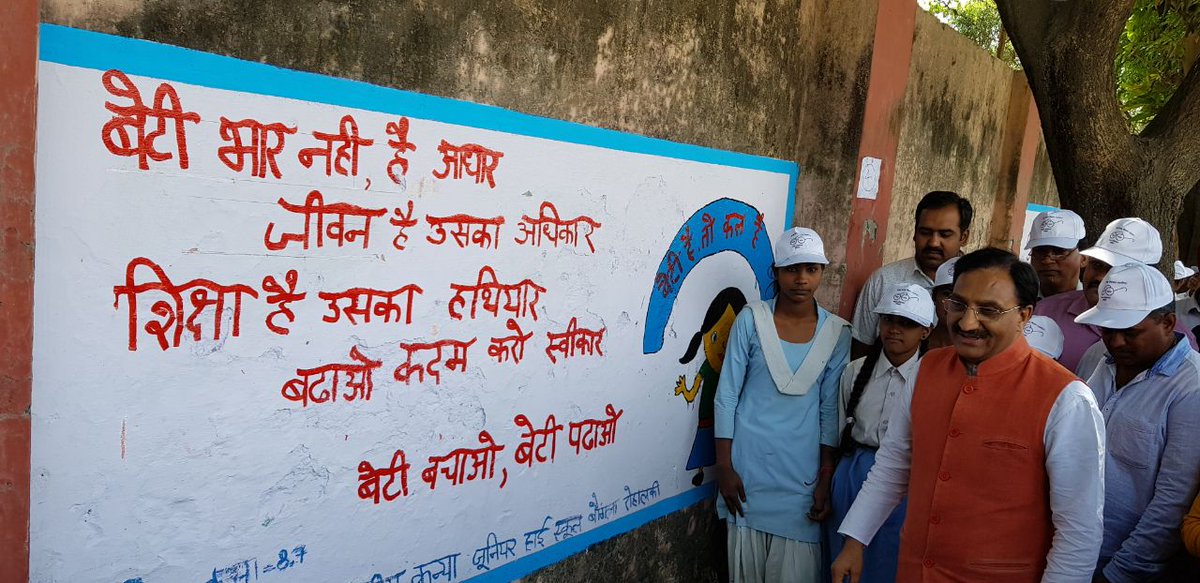 बेटी भार नही, है आधार
जीवन है उसका अधिकार
शिक्षा है उसका हथियार
बढाओ कदम करो स्वीकार
बेटी बचाओ, बेटी पढाओ
बेटी है तो कल है
कन्या जूनियर हाई स्कूल